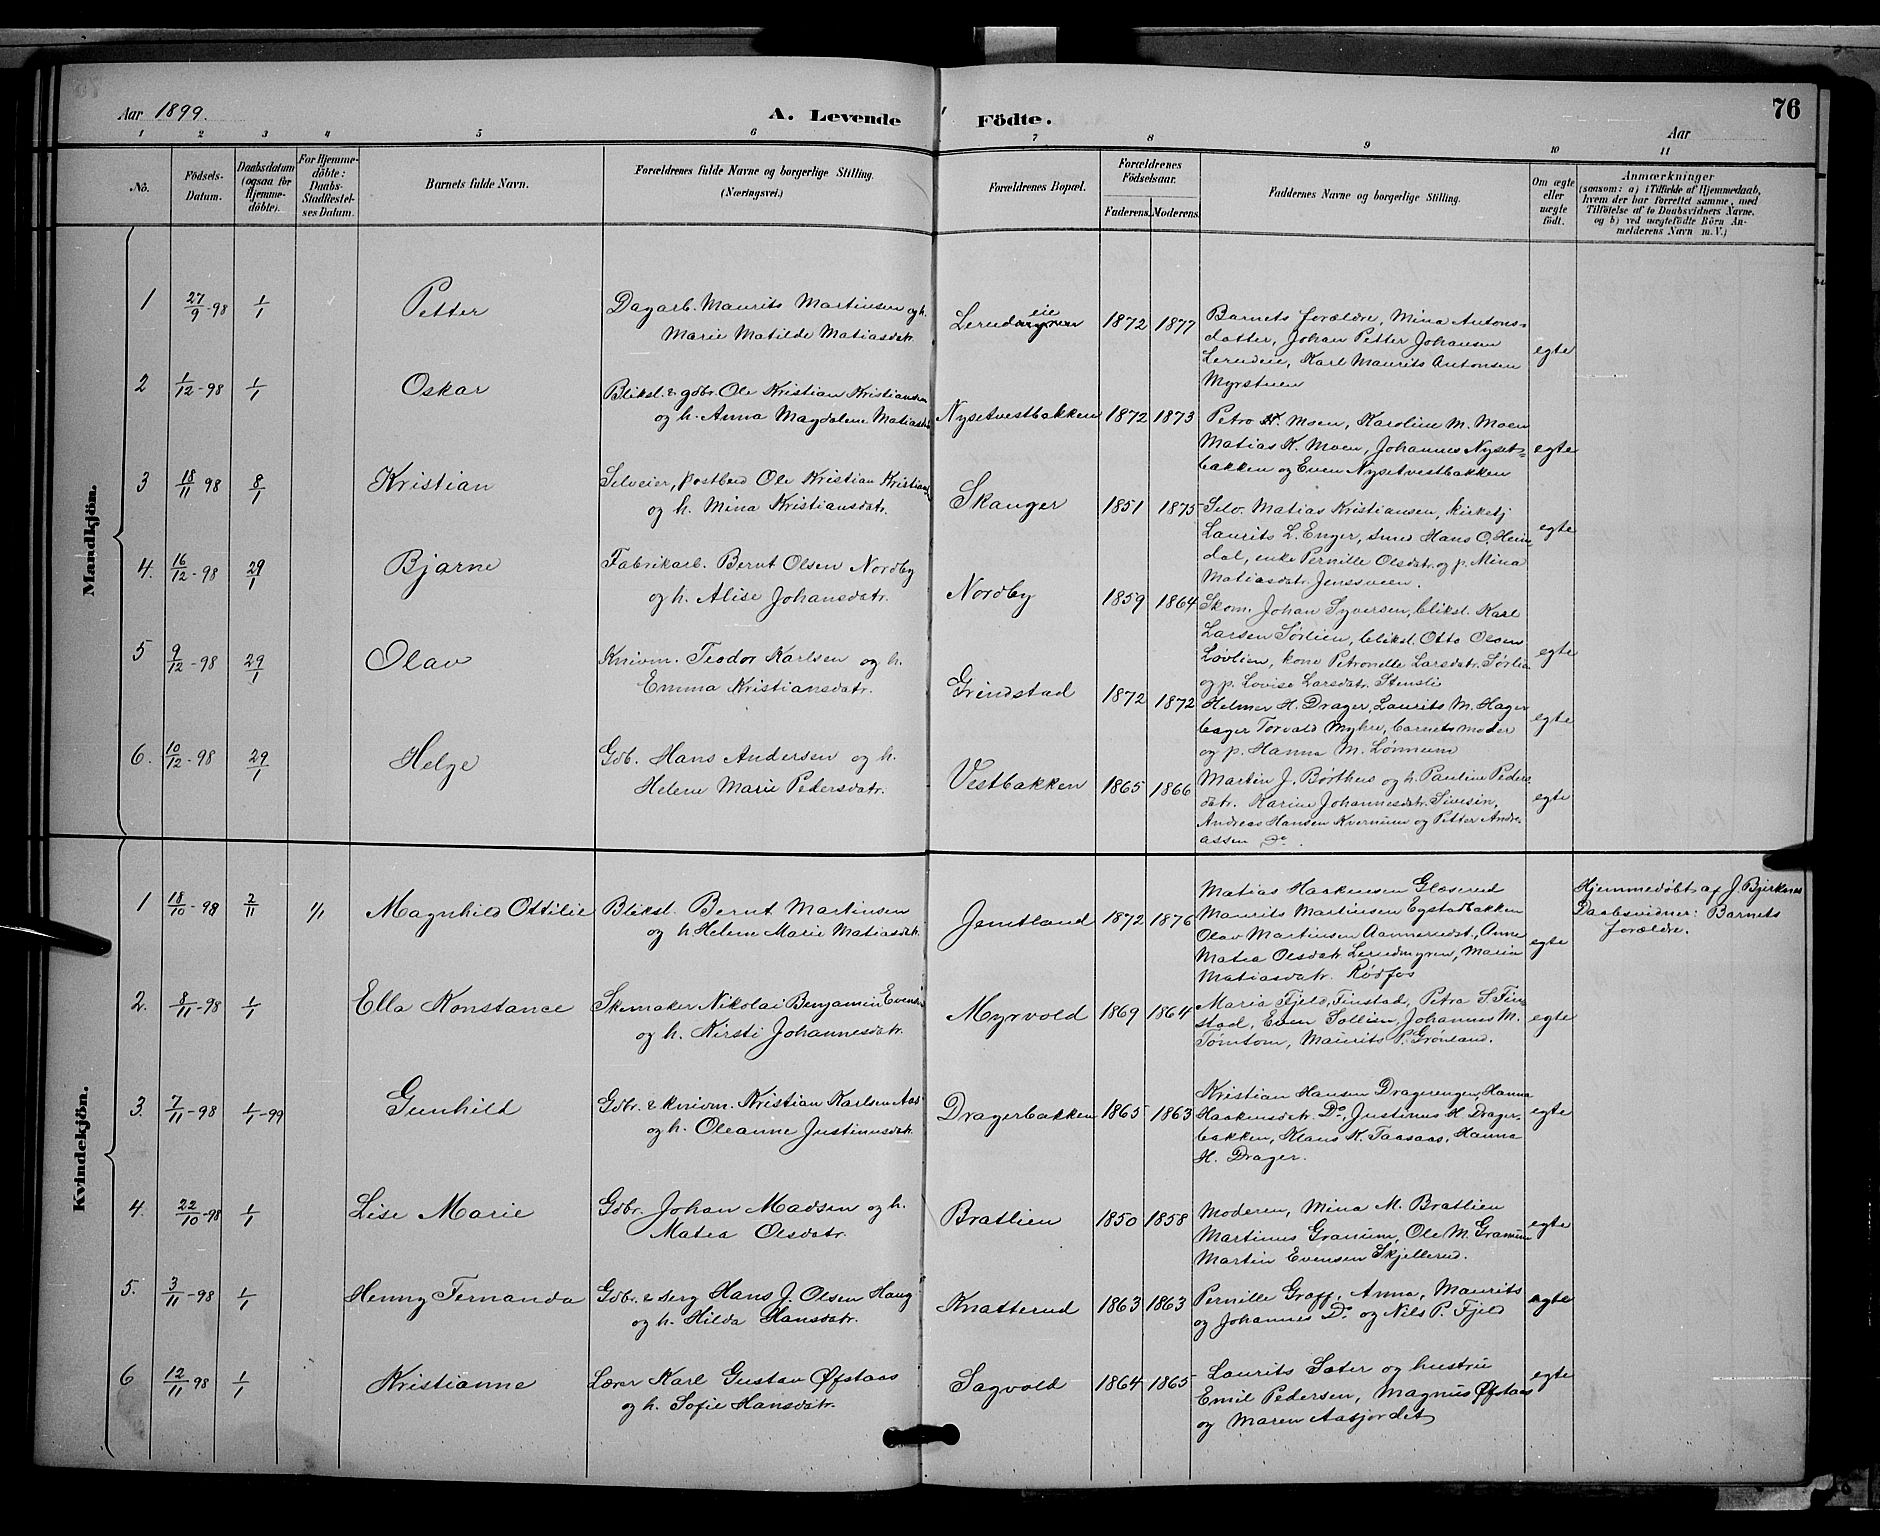 Aar 1899.
A. Levende Födte.
76
Aar
1 2 3 4 5 6 7 8 9 10 11
No.
Födsels-
Datum.
Daabsdatum
(ogsaa for
Hjemme-
döbte).
For Hjemme-
döbte:
Daabs-
Stadfæstel-
ses Datum.
Barnets fulde Navn.
Forældrenes fulde Navne og borgerlige Stilling.
(Næringsvei.)
Forældrenes Bopæl.
Forældrenes
Födselsaar.
Faderens. Moderens.
Faddernes Navne og borgerlige Stilling.
Om ægte
eller
uægte
födt.
Anmærkninger
(saasom: a) i Tilfælde af Hjemmedaab,
hvem der har forrettet samme, med
Tilföielse af to Daabsvidners Navne,
og b) ved uægtefödte Börn An-
melderens Navn m. V.)
Mandkjön.
1 27/9-98 1/1 Petter
Dagarb. Maurits Martinsen og h.
Marie Matilde Matiasdatr.
Lerudeie 1872 1877
Barnets forældre, Mina Antons-
datter, Johan Petter Johansen
Lerudeie, Karl Maurits Antonsen
Myrstuen
egte
2 1/12-98 1/1 Oskar
Bliksl. & gdbr. Ole Kristian Kristiansen
og h. Anna Magdalene Matiasdtr
Nysetvestbakken 1872 1873
Petro K. Moen, Karoline M. Moen
Matias K. Moen, Johannes Nyset-
bakken og Even Nysetvestbakken
egte
3 18/11 98 8/1 Kristian
Selveier, postbud Ole Kristian Kristiansen
og h. Mina Kristiansdatr.
Skanger 1851 1875
Selv. Matias Kristiansen, kirketj
Laurits L. Enger, smed Hans O. Heim
dal, enke Pernille Olsdatr. og p. Mina
Matiasdatr. Jensveen.
egte
4. 16/12-98 29/1 Bjarne
Fabrikarb. Bernt Olsen Nordby
og h. Alise Johansdatr.
Nordby 1859 1864
Skom. Johan Syversen, bliksl. Karl
Larsen Sørlien, bliksl. Otto Olsen
Løvlien, kone Petronelle Larsdatr. Sørlien
og p. Lovise Larsdatr. Stensli
egte
5 9/12-98 29/1 Olav
Knivm. Teodor Karlsen og h.
Emma Kristiansdatr.
Grindstad 1872 1872
Helmer H. Drager, Laurits M. Hager
bager Torvald Myhre, barnets moder
og p. Hanna M. Lønnum
egte
6. 10/12-98 29/1 Helge
Gdb. Hans Andersen og h.
Helene Marie Pedersdatr.
Vestbakken 1865 1866
Martin J. Børthus og h. Pauline Peders
datr. Karine Johannesdatr. Sivesin,
Andreas Hansen Kvernum og Petter Andre-
assen Do.
egte
Kvindekjön.
1 18/10-98 2/11 1/1 Magnhild Ottilie
Bliksl. Bernt Martinsen
og h. Helene Marie Matiasdatr.
Jemtland 1872 1876
Matias Haakensen Glæserud
Maurits Martinsen Egstadbakken
Olav Martinsen Aannerudst., Anne
Matea Olsdatr. Lerudmyren, Maria
Matiasdatr. Rødfos
egte
Hjemmedøbt af J. Bjerknes
Daabsvidner: Barnets
forældre.
2. 8/11-98 1/1 Ella Konstance
Skomaker Nikolai Benjamin Evensen
og h. Kirsti Johannesdatr.
Myrvold 1869 1864
Maria Fjeld, Finstad, Petra S. Fin-
stad, Even Sollien, Johannes M.
Tømtom, Maurits P. Grønland.
egte
3. 7/11-98 1/1-99 Gunhild
Gdbr. & knivm. Kristian Karlsen Aas
og h. Oleanne Justinusdatr.
Dragerbakken 1865 1863
Kristian Hansen Dragerenger, Hanna
Haakensdatr. Do, Justinus H. Drager-
bakken, Klaus K. Taasaas, Hanna
H. Drager.
egte
4. 22/10-98 1/1 Lise Marie
Gdbr. Johan Madsen og h.
Matea Olsdatr.
Bratlien 1850 1858
Moderen, Mina M. Bratlien
Martinus Granum, Ole M. Granum
Martin Evensen Skjellerud.
egte
5. 3/11-98 1/1 Henny Fernanda
Gdbr. & serg Hans J. Olsen Haug
og h. Hilda Hansdatr.
Knatterud 1863 1863
Pernille Graff, Anna, Maurits
og Johannes Do. og Nils P. Fjeld
egte
6 12/11 98 1/1 Kristianne
Lærer Karl Gustav Øfstaas
og h. Sofie Hansdatr.
Sagvold 1864 1865
Laurits Sater og hustru
Emil Pedersen, Magnus Øfstaas
og Maren Aasjordet
egte